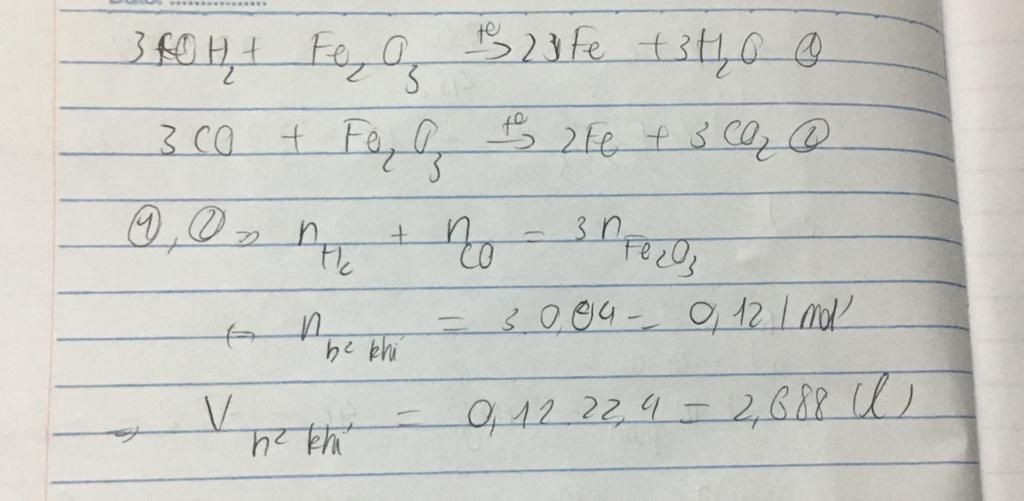 3H₂ + Fe₂O₃ →(t°) 2Fe + 3H₂O ①
3CO + Fe₂O₃ →(t°) 2Fe + 3CO₂ ②
①, ② => n H₂ + n CO = 3 n Fe₂O₃
⇔ n h² khí = 3.0,04 = 0,12 (mol)
=> V h² khí = 0,12.22,4 = 2,688 (l)